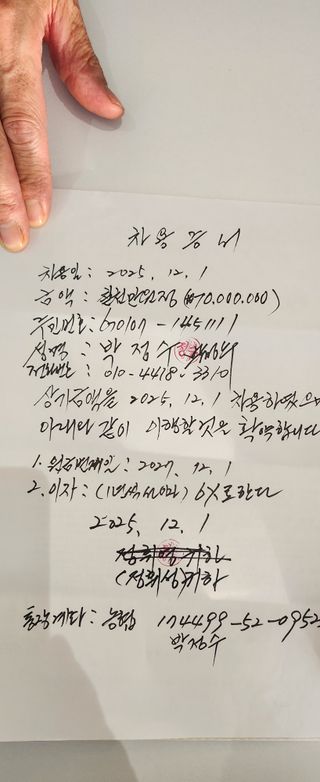 차용증서
차용일: 2025. 12. 1
금액: 칠천만원정 (₩70.000.000)
주민번호: 670107-1451111
성명: 박정수
전화번호: 010-4418-3310
상기금액을 2025. 12. 1 차용하였으며
아래와 같이 이행할것을 확약합니다
1. 원금변제일: 2027. 12. 1
2. 이자: (1년식 선이자) 6%로한다
2025. 12. 1
(정휘성)귀하
통장계좌: 농협 174499-52-0952
박정수